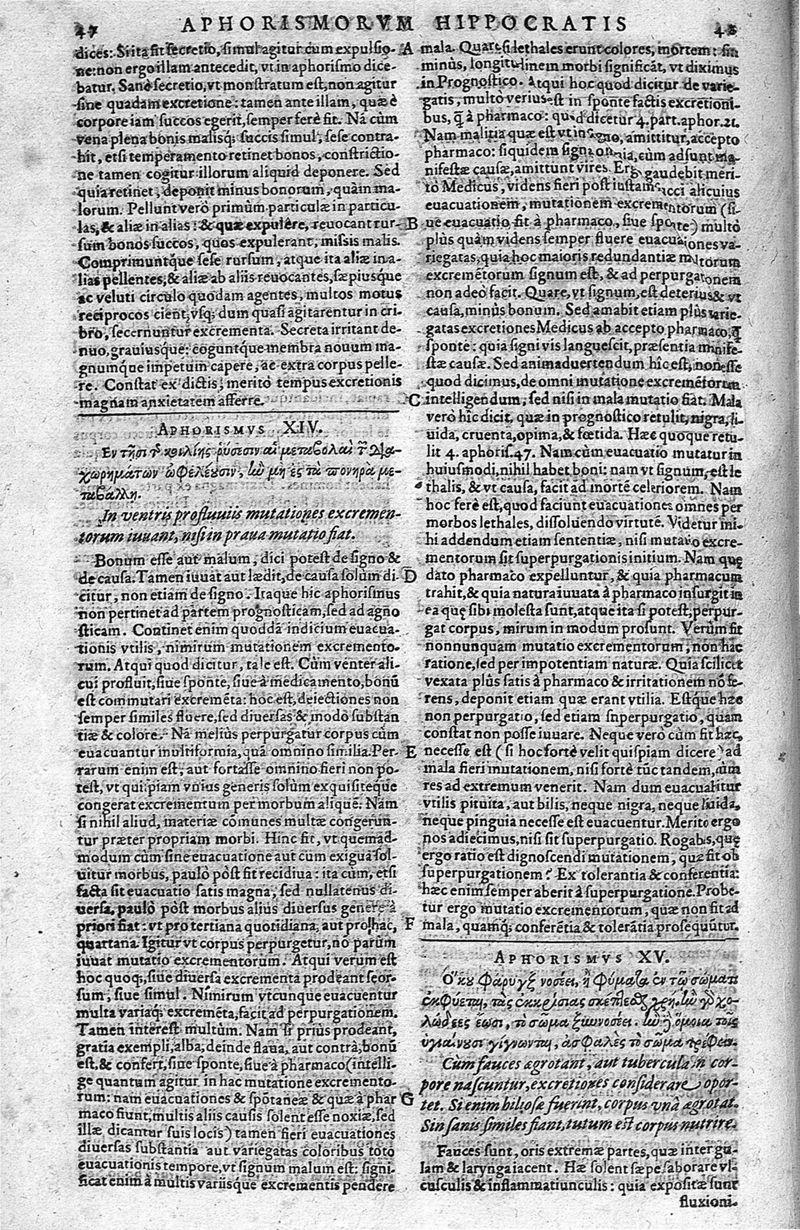 47 APHORISMORVM HIPPOCRATIS 48
dices: Si ita fit secretio, simul agitur cum expulsio-
ne: non ergo illam antecedit, vt in aphorismo dice-
batur. Sanè secretio, vt monstratum est, non agitur
sine quadam excretione: tamen ante illam, quæ è
corpore iam succos egerit, semper ferè fit. Nā cùm
vena plena bonis malisq; succis simul, sese contra-
hit, etsi temperamento retinet bonos, constrictio-
ne tamen cogitur illorum aliquid deponere. Sed
quia retinet, deponit minus bonorum, quàm ma-
lorum. Pellunt verò primùm particulæ in particu-
las, & aliæ in alias: & quæ expulêre, reuocant rur-
sum bonos succos, quos expulerant, missis malis.
Comprimuntque sese rursum, atque ita aliæ in a-
lias pellentes, & aliæ ab aliis reuocantes, sæpiusque
ac veluti circulo quodam agentes, multos motus
reciprocos cient, vsq; dum quasi agitarentur in cri-
bro, secernuntur excrementa. Secreta irritant de-
nuo, grauiusque: coguntque membra nouum ma-
gnumque impetum capere, ac extra corpus pelle-
re. Constat ex dictis, meritò tempus excretionis
magnam anxietatem afferre.
APHORISMVS XIV.
Εν τῇσι τ͂ κοιλίης ῥύσεσιν αἱ μεταβολαὶ τ͂ δια-
χωρημάτων ὠφελέουσιν, ἢν μὴ ἐς τὰ πονηρὰ με-
ταβάλλῃ.
In ventris profluuiis mutationes excremen-
torum iuuant, nisi in praua mutatio fiat.
Bonum esse aut malum, dici potest de signo &
de causa. Tamen iuuat aut lædit, de causa solùm di-
citur, non etiam de signo. Itaque hic aphorismus
non pertinet ad partem prognosticam, sed ad agno
sticam. Continet enim quoddā indicium euacua-
tionis vtilis, nimirum mutationem excremento-
rum. Atqui quod dicitur, tale est. Cùm venter ali-
cui profluit, siue sponte, siue à medicamento, bonū
est commutari excremēta: hoc est, deiectiones non
semper similes fluere, sed diuersas & modò substan
tiæ & colore. Nā meliùs perpurgatur corpus cùm
euacuantur multiformia, quā omnino similia. Per-
rarum enim est, aut fortasse omnino fieri non po-
test, vt quipiam vnius generis solùm exquisiteque
congerat excrementum per morbum aliquē. Nam
si nihil aliud, materiæ cōmunes multæ congerun-
tur præter propriam morbi. Hinc fit, vt quemad-
modum cùm sine euacuatione aut cum exigua sol-
uitur morbus, paulò pòst fit recidiua: ita cùm, etsi
facta sit euacuatio satis magna, sed nullatenus di-
uersa, paulò pòst morbus alius diuersus genere à
priori fiat: vt pro tertiana quotidiana, aut pro hac,
quartana. Igitur vt corpus perpurgetur, nō parum
iuuat mutatio excrementorum. Atqui verum est
hoc quoq;, siue diuersa excrementa prodeant seor-
sum, siue simul. Nimirum vtcunque euacuentur
multa variaq; excremēta, facit ad perpurgationem.
Tamen interest multum. Nam si prius prodeant,
gratia exempli, alba: deinde flaua, aut contrà, bonū
est, & confert, siue sponte, siue à pharmaco (intelli-
ge quantum agitur in hac mutatione excremento-
rum: nam euacuationes & spōtaneæ & quæ à phar
maco fiunt, multis aliis causis solent esse noxiæ, sed
illæ dicantur suis locis) tamen fieri euacuationes
diuersas substantia aut variegatas coloribus toto
euacuationis tempore, vt signum malum est: signi-
ficat enim à multis variisque excrementis pendere
A
B
C
D
E
F
G
mala. Quare si lethales erunt colores, mortem: sin
minùs, longitudinem morbi significāt, vt diximus
in Prognostico. Atqui hoc quod dicitur de varie-
gatis, multò verius est in sponte factis excretioni-
bus, q̄ à pharmaco: quod dicetur 4. part. aphor. 21.
Nam malitia quæ est vt in signo, amittitur, accepto
pharmaco: siquidem signa omnia, cùm adsunt ma-
nifestæ causæ, amittunt vires. Ergo gaudebit meri-
tò Medicus, videns fieri post iustam succi alicuius
euacuationem, mutationem excrementorum (si-
ue euacuatio fit à pharmaco, siue sponte) multò
plùs quàm videns semper fluere euacuationes va-
riegatas, quia hoc maioris redundantiæ malorum
excremētorum signum est, & ad perpurgationem
non adeò facit. Quare, vt signum, est deterius & vt
causa, minùs bonum. Sed amabit etiam plùs varie-
gatas excretiones Medicus ab accepto pharmaco, q̄
sponte: quia signi vis languescit, præsentia manife-
stæ causæ. Sed animaduertendum hîc est, non esse
quod dicimus, de omni mutatione excremētorum
intelligendum, sed nisi in mala mutatio fiat. Mala
verò hîc dicit, quæ in prognostico retulit, nigra, li-
uida, cruenta, opima, & fœtida. Hæc quoque retu-
lit 4. aphoris. 47. Nam cùm euacuatio mutatur in
huiusmodi, nihil habet boni: nam vt signum, est le
thalis, & vt causa, facit ad mortē celeriorem. Nam
hoc ferè est, quod faciunt euacuationes omnes per
morbos lethales, dissoluendo virtutē. Videtur mi-
hi addendum etiam sententiæ, nisi mutatio excre-
mentorum sit superpurgationis initium. Nam quę
dato pharmaco expelluntur, & quia pharmacum
trahit, & quia natura iuuata à pharmaco insurgit in
ea quę sibi molesta sunt, atque ita si potest, perpur-
gat corpus, mirum in modum prosunt. Verùm fit
nonnunquam mutatio excrementorum, non hac
ratione, sed per impotentiam naturæ. Quia scilicet
vexata plùs satis à pharmaco & irritationem nō fe-
rens, deponit etiam quæ erant vtilia. Estque hæc
non perpurgatio, sed etiam superpurgatio, quam
constat non posse iuuare. Neque verò cùm fit hæc,
necesse est (si hoc fortè velit quispiam dicere) ad
mala fieri mutationem, nisi fortè tūc tandem, cùm
res ad extremum venerit. Nam dum euacuatur
vtilis pituita, aut bilis, neque nigra, neque liuida,
neque pinguia necesse est euacuentur. Meritò ergo
nos adiecimus, nisi sit superpurgatio. Rogabis, quę
ergo ratio est dignoscendi mutationem, quæ fit ob
superpurgationem? Ex tolerantia & conferentia:
hæc enim semper aberit à superpurgatione. Probe-
tur ergo mutatio excrementorum, quæ non fit ad
mala, quamq; conferētia & tolerātia prosequūtur.
APHORISMVS XV.
Ο῞κου φάρυγξ νοσέει, ἢ φύματα ἐν τῷ σώματι
ἐκφύεται, τὰς ἐκκρίσιας σκέπτεσθαι χρή. ἢν γὸ χο-
λώδεες ἔωσι, τὸ σῶμα ξυννοσέει. ἢν ἢ ὅμοιαι τοῖς
ὑγιαίνουσι γίγνωνται, ἀσφαλὲς τὸ σῶμα τρέφειν.
Cum fauces ægrotant, aut tubercula in cor-
pore nascuntur, excretiones considerare opor-
tet. Si enim biliosæ fuerint, corpus vnà ægrotat.
Sin sanis similes fiant, tutum est corpus nutrire.
Fauces sunt, oris extremæ partes, quæ inter gu-
lam & laryngā iacent. Hæ solent sæpe laborare vl-
cusculis & inflammatiunculis: quia expositæ sunt
fluxioni-